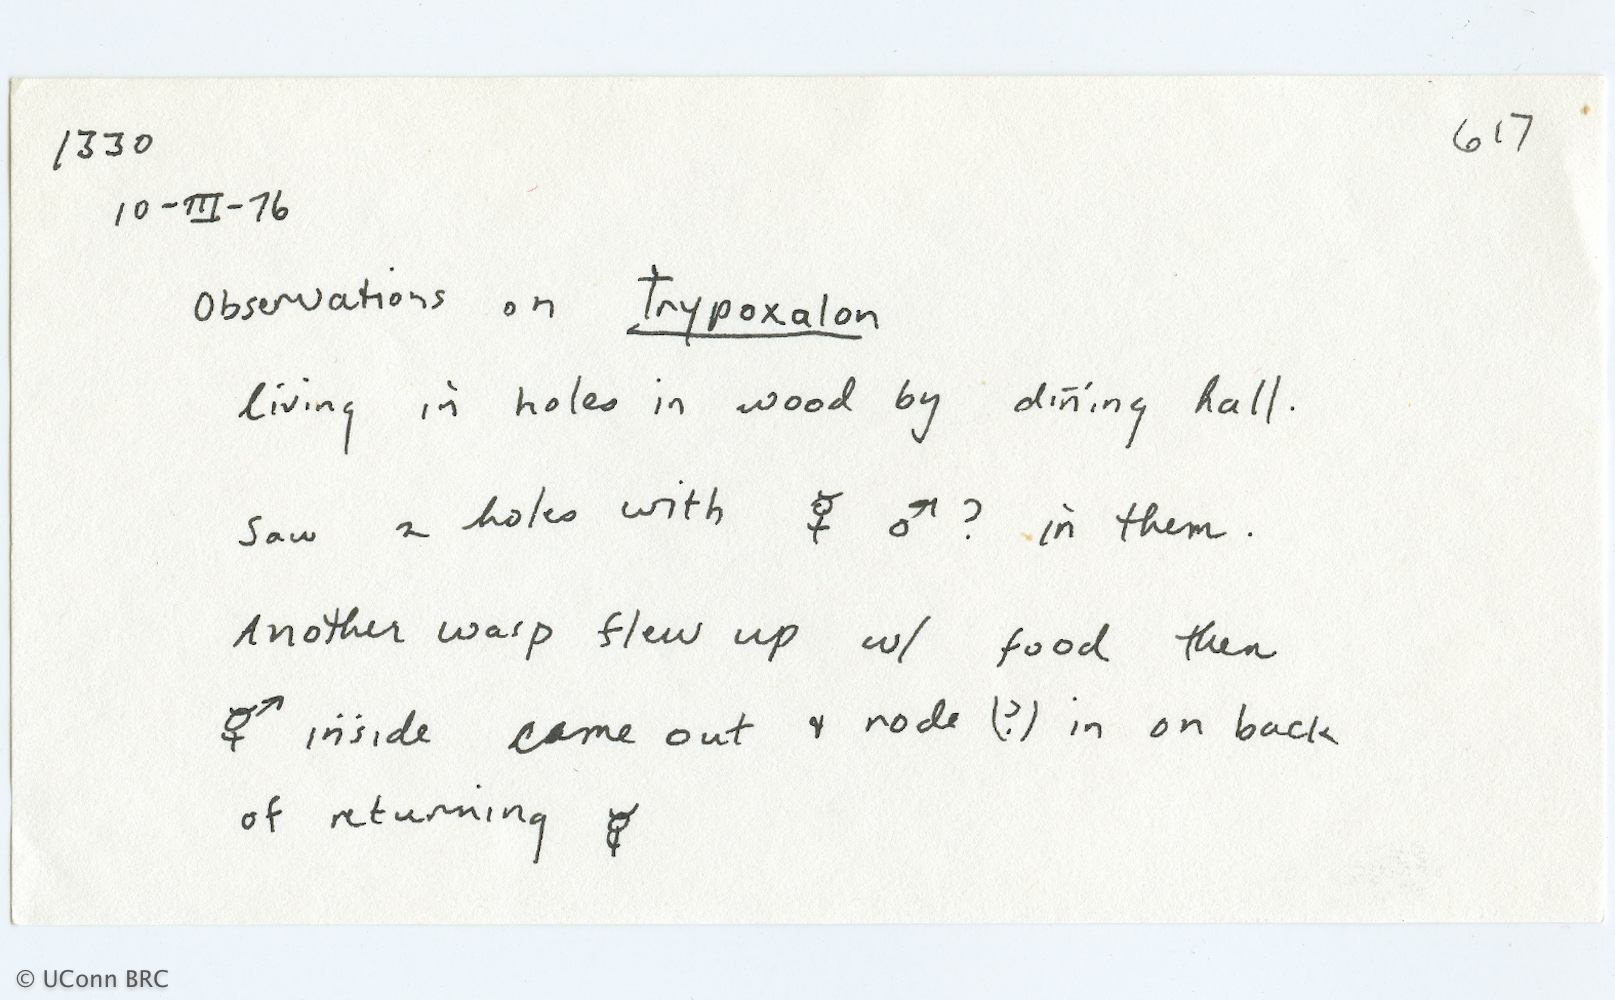 1330 617
10-III-76
Observations on Trypoxalon
living in holes in wood by dining hall.
Saw 2 holes with ☿ ♂? in them.
Another wasp flew up w/ food then
☿♂ inside came out & rode (?) in on back
of returning ☿
© UConn BRC